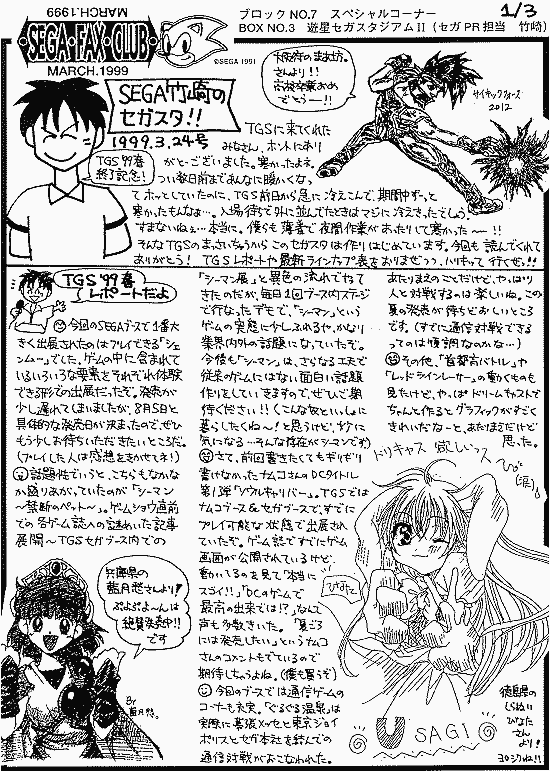 MARCH.1999
・SEGA・FAX・CLUB・
MARCH.1999
©SEGA 1991
ブロック NO.7 スペシャルコーナー
BOX NO.3 遊星セガスタジアムⅡ (セガPR担当 竹崎)
1/3
SEGA竹崎の
セガスタ!!
1999.3.24号
TGS'99春
終了記念!
さんより!!
高校卒業おめ
でとうー!!
サイキックフォース
2012
TGSに来てくれた
みなさん、ホントにあり
がとーございました。寒かったよネ。
つい数日前まであんなに暖かくなっ
てホッとしていたのに、TGS前日から急に冷えこんで、期間中ずっと
寒かったもんなぁ…。入場待ちで外に並んでたときはマジに冷えきったでしょう。
すまないねぇ…本当に。僕らも薄着で夜間作業があったりして寒かった〜ー!!
そんなTGSのまっさいちゅうからこのセガスタは作りはじめています。今回も読んでくれて
ありがとう! TGSレポートや最新ラインナップ表をおりまぜつつ、ハリキって行くぜっ!!
TGS'99春
レポートだよ
今回のSEGAブースで1番大
きく出展されたのはプレイできる「シェ
ンムー」でした。ゲームの中に含まれて
いるいろいろな要素をそれぞれ体験
できる形での出展だったぞ。発売が
少し遅れてしまいましたが、8月5日と
具体的な発売日が決まったので、ぜひ
もう少しお待ちいただきたいところだ。
(プレイした人は感想をきかせてネ!)
話題性でいうと、こちらもなかな
か盛りあがっていたのが「シーマン
〜禁断のペット〜」。ゲームショウ直前
での各ゲーム誌への謎めいた記事
展開〜TGSセガブース内での
「シーマン展」と異色の流れでやって
きたのだが、毎日1回ブース内ステージ
で行なったデモで、「シーマン」という
ゲームの実態に少しふれるや、かなり
業界内外の話題になっていたぞ。
今後も「シーマン」は、さらなる工夫で
従来のゲームにはない面白い話題
作りをしていきますので、ぜひご期
待ください!!(こんな奴といっしょに
暮らしたくね〜!と思うけど、妙に
気になる…そんな存在がシーマンです)
さて、前回書きたくてもギリギリ
書けなかったナムコさんのDCタイトル
第1弾「ソウルキャリバー」。TGSでは
ナムコブース&セガブースで、すでに
プレイ可能な状態で出展され
ていたぞ。ゲーム誌ですでにゲーム
画面が公開されているけど、
動いてるのを見て「本当に
スゴイ!!」「DCのゲームで
最高の出来では!?」なんて
声も多数きいた。「夏ごろ
には発売したい」というナムコ
さんのコメントもでているので
期待しちゃうよね。(僕も買うぞ)
今回のブースでは通信ゲームの
コーナーも充実。「ぐるぐる温泉」は
実際に幕張メッセと東京ジョイ
ポリスとセガ本社を結んでの
通信対戦がおこなわれた。
あたりまえのことだけど、やっぱり
人と対戦するのは楽しいね。この
夏の発売が待ちどおしいところ
です。(すでに通信対戦できる
ってのは順調なのかな…)
その他、「首都高バトル」や
「レッドラインレーサー」の動くものも
見たけど、やっぱドリームキャストで
ちゃんと作るとグラフィックがすごく
きれいだなーと、あたりまえだけど
思った。
ドリキャス 欲しいっス
び〜(涙)
兵庫県の
藍月悠さんより!
ぷよぷよ〜んは
絶賛発売中!!
です
By
藍月悠。
USAGI
徳島県の
しらぬい
ひなた
さん
より!
ヨロシクね!!